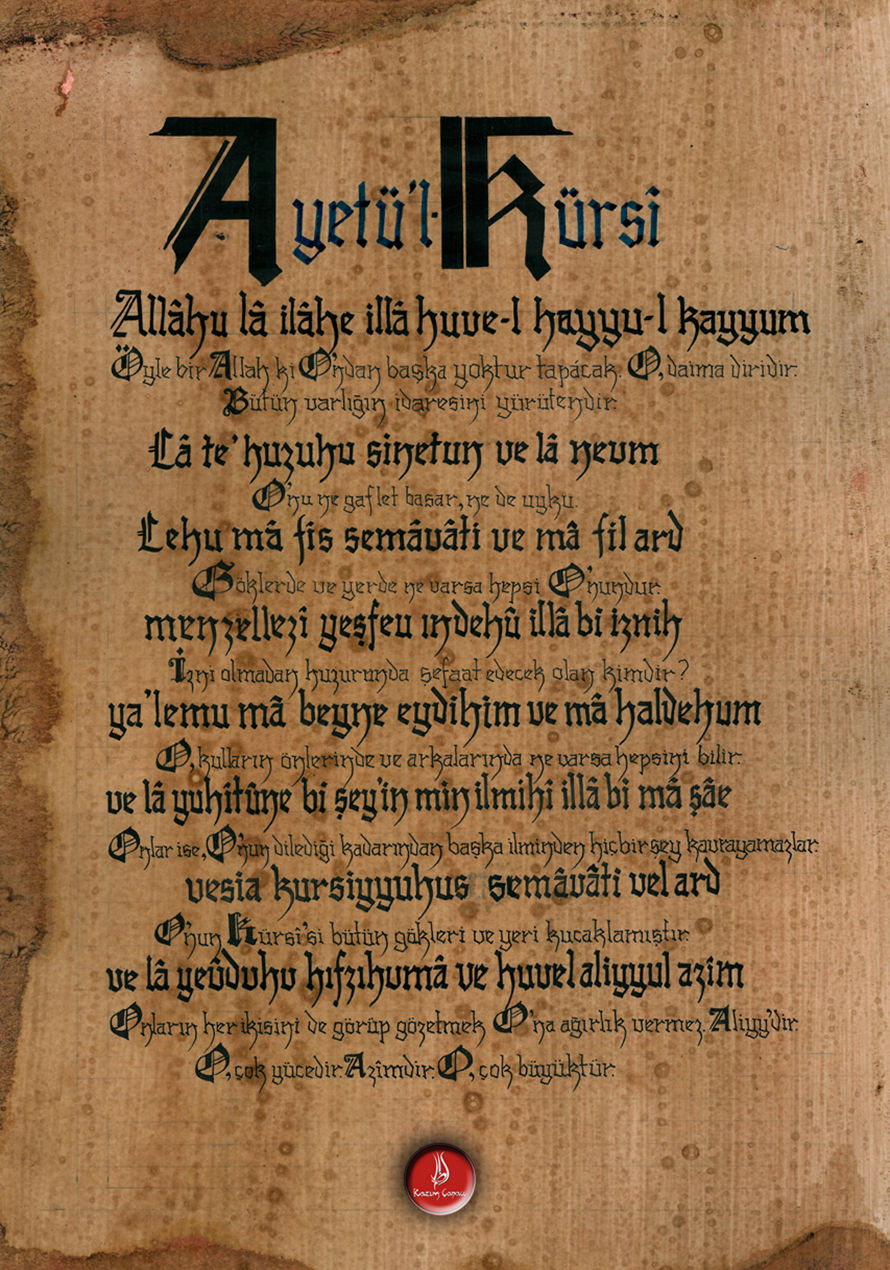 Ayetü'l-Kürsî
Allâhu lâ ilâhe illâ huve-l hayyu-l kayyum
Öyle bir Allah ki O'ndan başka yoktur tapácak. O, daima diridir.
Bütün varlığın idaresini yürütendir.
Lâ te'huzuhu sinetun ve lâ nevm
O'nu ne gaflet basar, ne de uyku.
Lehu mâ fis semâvâti ve mâ fil ard
Göklerde ve yerde ne varsa hepsi O'nundur.
menzellezî yeşfeu ındehû illâ bi iznih
İzni olmadan huzurunda şefaat edecek olan kimdir?
ya'lemu mâ beyne eydihîm ve mâ haldehum
O, kulların önlerinde ve arkalarında ne varsa hepsini bilir.
ve lâ yuhitûne bi şey'in min ilmihî illâ bi mâ şâe
Onlar ise, O'nun dilediği kadarından başka ilminden hiçbir şey kavrayamazlar.
vesia kursiyyuhus semâvâti vel ard
O'nun Kürsî'si bütün gökleri ve yeri kucaklamıştır.
ve lâ yeûduhu hıfzıhumâ ve huvel aliyyul azîm
Onların her ikisini de görüp gözetmek O'na ağırlık vermez. Aliyy'dir.
O, çok yücedir. Azîmdir. O, çok büyüktür.